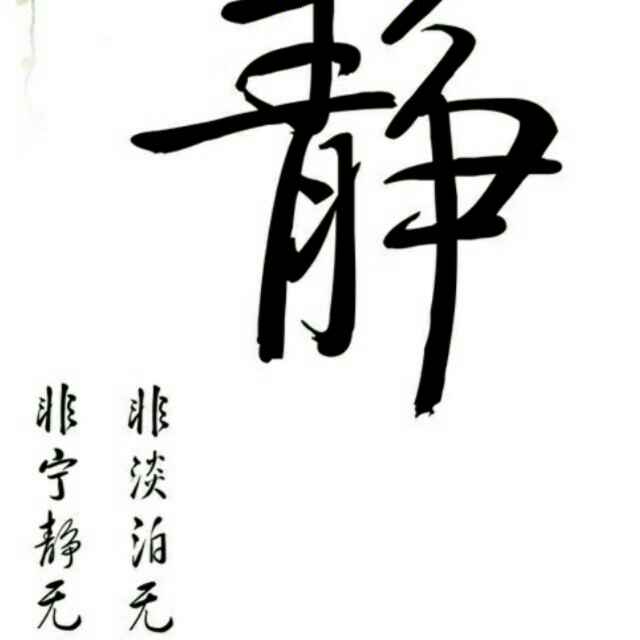 静
非淡泊无
非宁静无